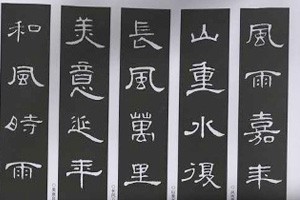 風雨嘉年
山重水復
長風萬里
美意延年
和風時雨